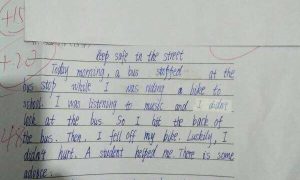 +15
Keep safe in the street
+20
Today morning, a bus stopped at the
bus stop while I was riding a bike to
school. I was listening to music and I didn't
look at the bus So I hit the back of
the bus. Then, I fell off my bike. Luckily, I
didn't hurt. A student helped me There is some
advice.